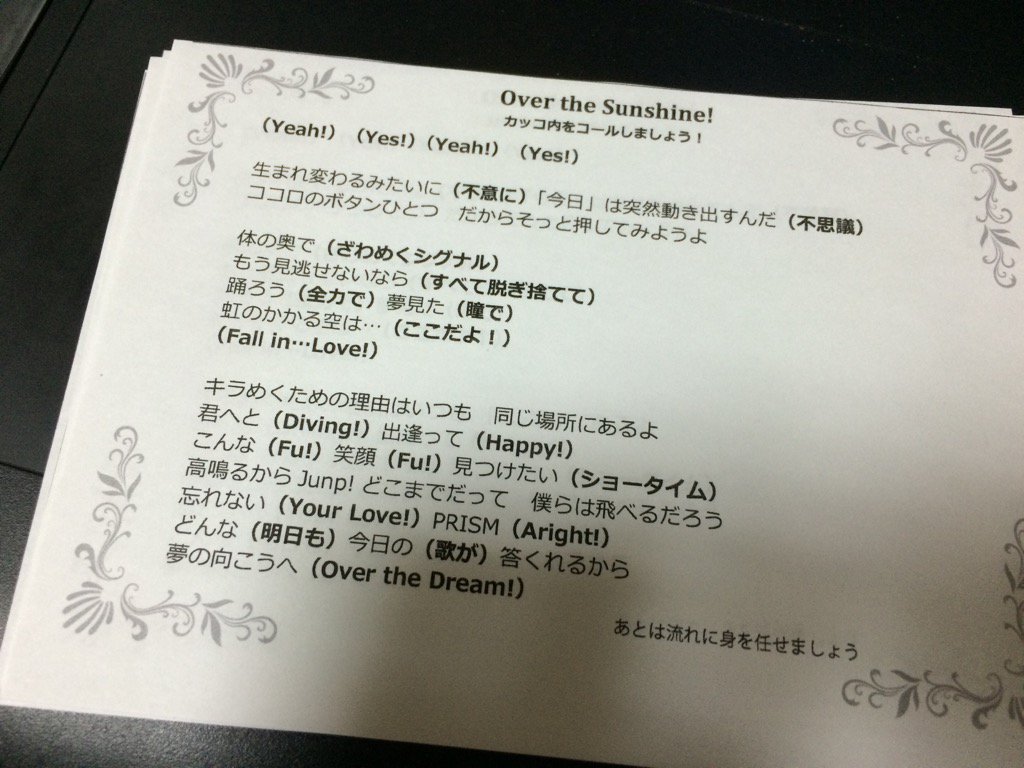 Over the Sunshine!
カッコ内をコールしましょう！
（Yeah!）（Yes!）（Yeah!）（Yes!）
生まれ変わるみたいに（不意に）「今日」は突然動き出すんだ（不思議）
ココロのボタンひとつ　だからそっと押してみようよ
体の奥で（ざわめくシグナル）
もう見逃せないなら（すべて脱ぎ捨てて）
踊ろう（全力で）夢見た（瞳で）
虹のかかる空は…（ここだよ！）
（Fall in…Love!）
キラめくための理由はいつも　同じ場所にあるよ
君へと（Diving!）出逢って（Happy!）
こんな（Fu!）笑顔（Fu!）見つけたい（ショータイム）
高鳴るからJunp! どこまでだって　僕らは飛べるだろう
忘れない（Your Love!）PRISM（Aright!）
どんな（明日も）今日の（歌が）答くれるから
夢の向こうへ（Over the Dream!）
あとは流れに身を任せましょう